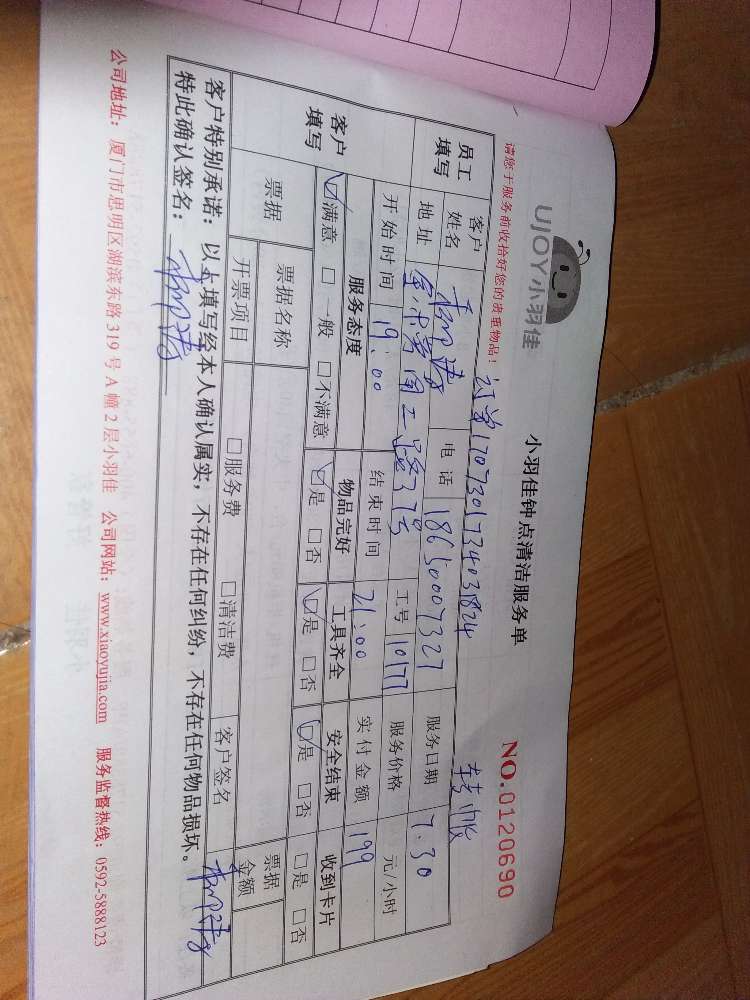 UJOY小羽佳
小羽佳钟点清洁服务单
NO.0120690
请您于服务前收拾好您的贵重物品！
订单1707301734031824
转账
员工填写
客户姓名
电话 18650007327
服务日期 7.30
地址
工号 10177
服务价格 元/小时
开始时间 19:00
结束时间 21:00
实付金额 199
客户填写
服务态度 物品完好 工具齐全 安全结束 收到卡片
☑满意 □一般 □不满意 ☑是 □否 ☑是 □否 ☑是 □否 □是 □否
票据
票据名称
客户签名
票据金额
开票项目 □服务费 □清洁费
客户特别承诺：以上填写经本人确认属实，不存在任何纠纷，不存在任何物品损坏。
特此确认签名：
公司地址：厦门市思明区湖滨东路 319 号 A 幢 2 层小羽佳 公司网站：www.xiaoyujia.com 服务监督热线：0592-5888123